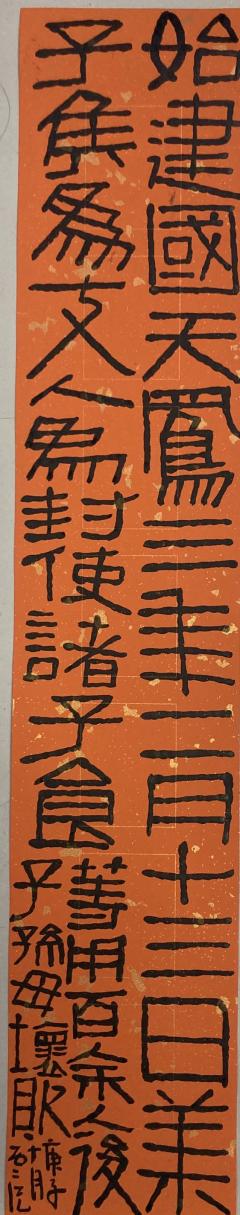 始建國天鳳三年二月十三日萊
子矦為支人為封使諸子食
等用百余人後
子孫毋壞敗
庚子